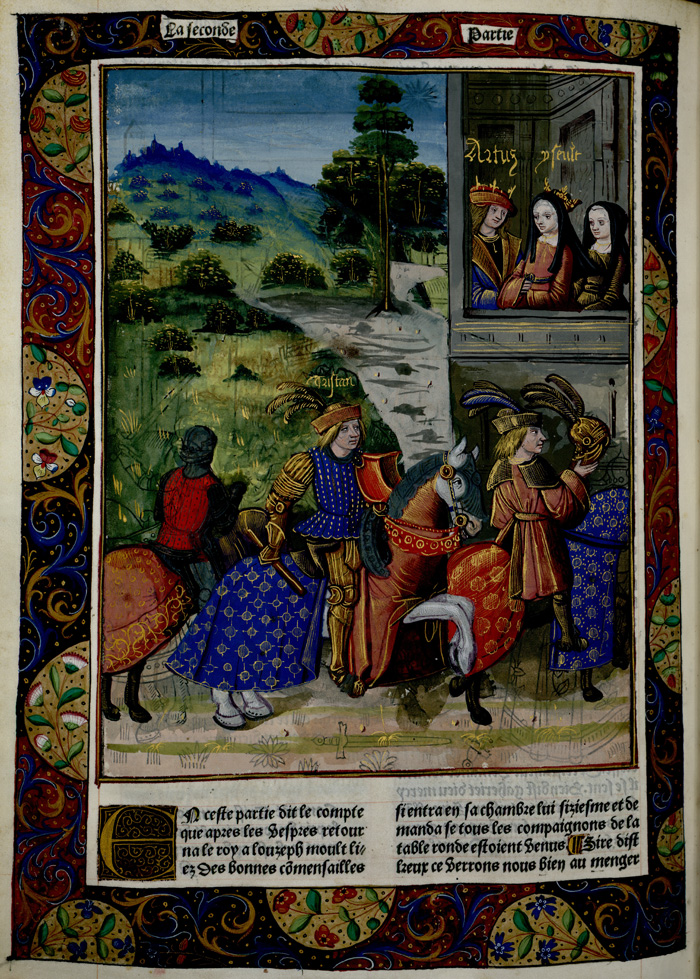 La seconde
Partie
Artus yseult
tristan
En ceste partie dit le compte
que apres les Vespres retour
na le roy a louzeph moult li-
ez Des bonnes cõmensailles
si entra en sa chambre lui siziesme et de
manda se tous les compaignons de la
table ronde estoient Venus. Sire dist
kreux ce Verrons nous bien au menger